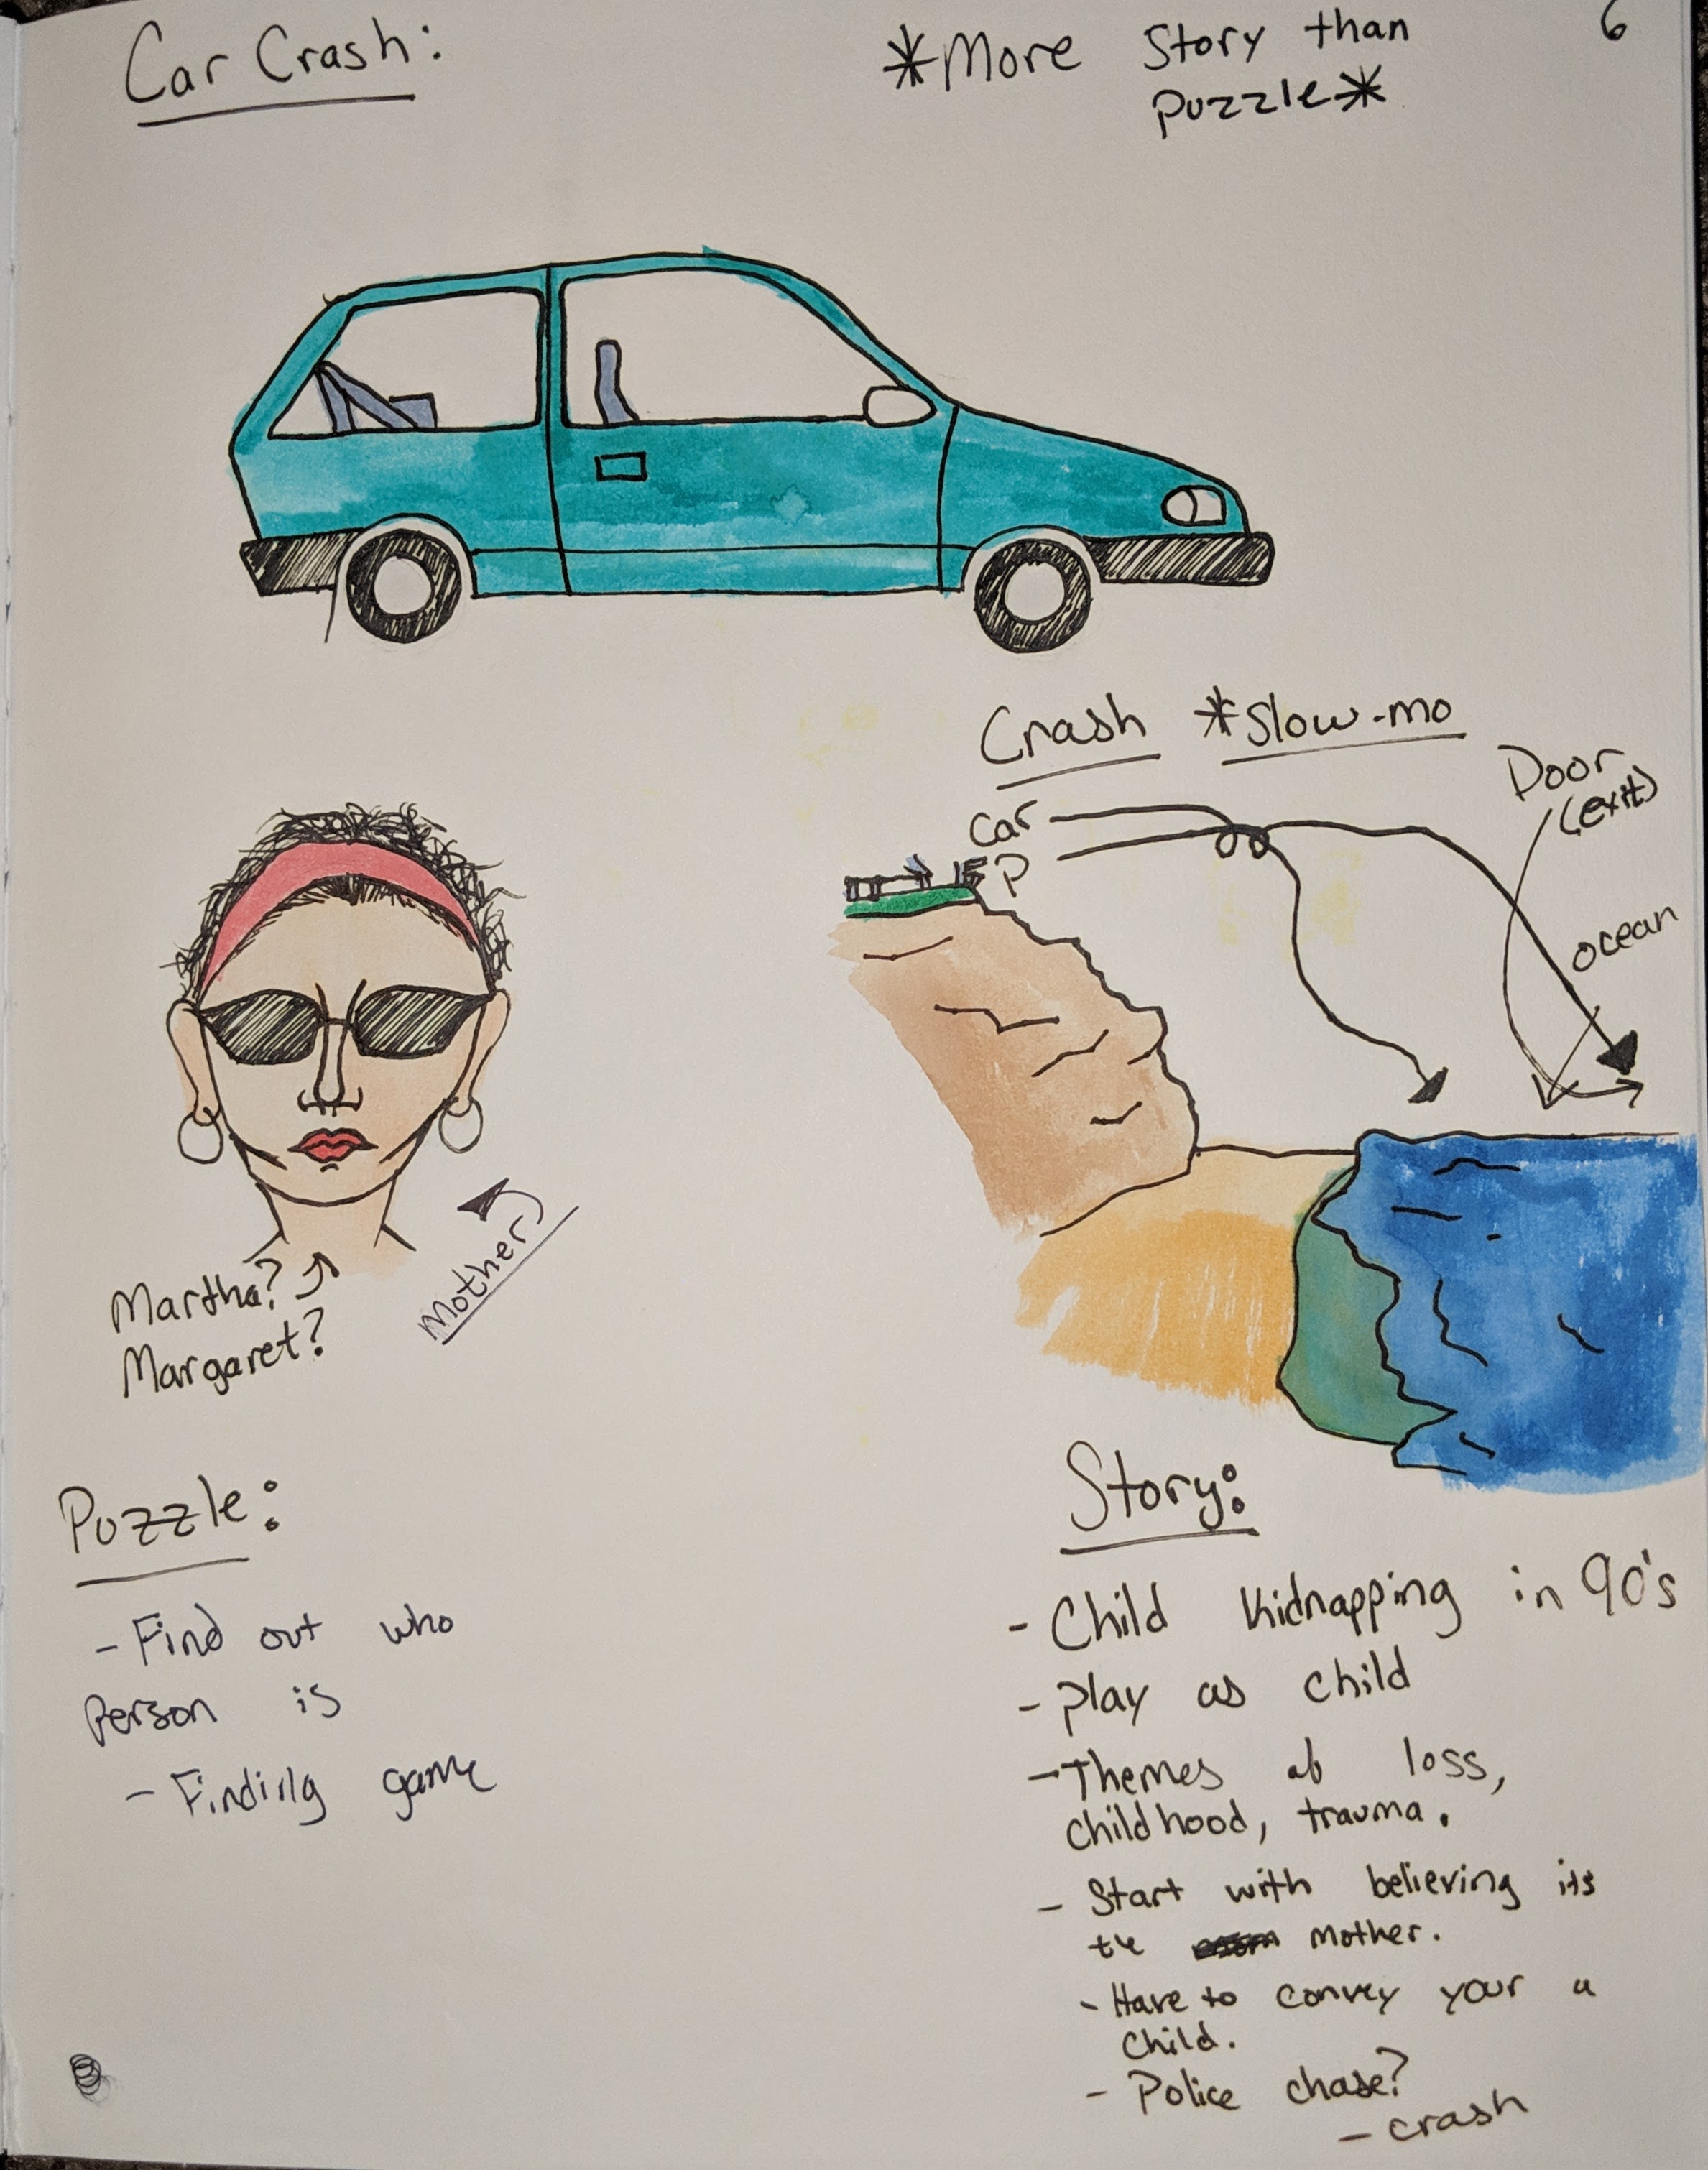 Car Crash:
*More Story than
Puzzle*
6
Crash *Slow-mo
Car
P
Door
(exit)
ocean
Martha?
Margaret?
Mother
Puzzle:
- Find out who
Person is
- Finding game
Story:
- Child Kidnapping in 90's
- Play as child
- Themes of loss,
childhood, trauma.
- Start with believing its
te mother.
- Have to convey your a
Child.
- Police chase?
- crash